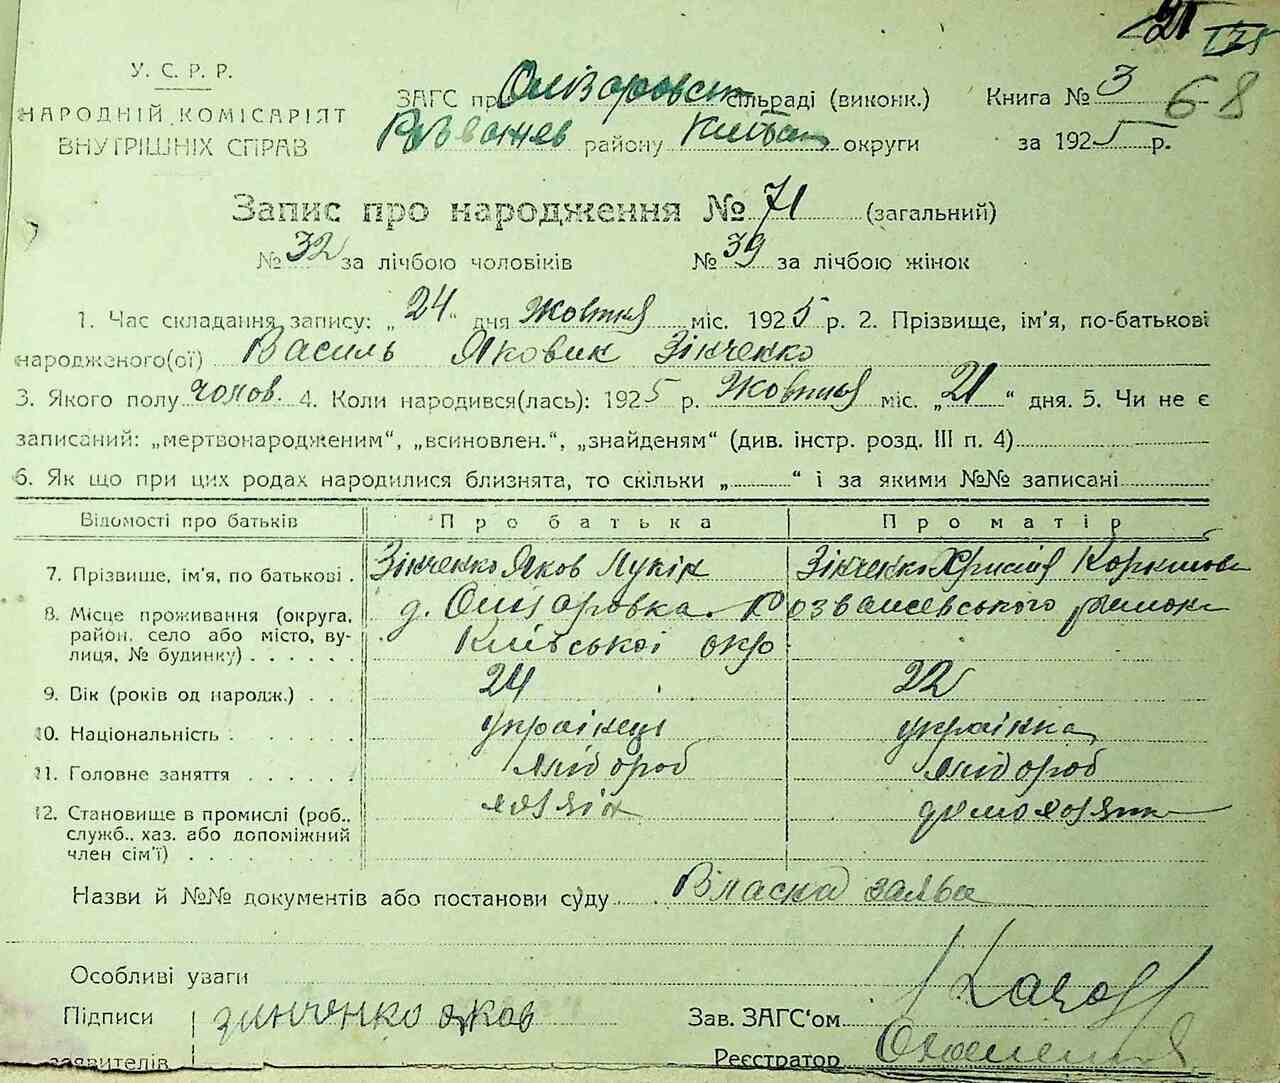 21 175
У. С. Р. Р.
НАРОДНІЙ КОМІСАРІЯТ
ВНУТРІШНІХ СПРАВ
ЗАГС при Олізаровск сільраді (виконк.) Книга № 3 68
Розважев району Київськ округи за 1925 р.
Запис про народження № 71 (загальний)
№ 32 за лічбою чоловіків № 39 за лічбою жінок
1. Час складання запису: „24“ дня Жовтня міс. 1925 р. 2. Прізвище, ім'я, по-батькові
народженого(ої) Василь Яковик Зінченко
3. Якого полу чолов. 4. Коли народився(лась): 1925 р. Жовтня міс. „21“ дня. 5. Чи не є
записаний: „мертвонародженим“, „всиновлен.“, „знайденям“ (див. інстр. розд. III п. 4)
6. Як що при цих родах народилися близнята, то скільки „ “ і за якими №№ записані
Відомості про батьків Про батька Про матір
7. Прізвище, ім'я, по батькові . Зінченко Яков Лукін Зінченко Христія
8. Місце проживання (округа, д. Олізаровка Розважевського району
район, село або місто, ву- Київської окр.
лиця, № будинку) . . . . . .
9. Вік (років од народж.) . . . 24 22
10. Національність . . . . . . українець українка
11. Головне заняття . . . . . . хлібороб хлібороб
12. Становище в промислі (роб., хозяін домохозяйка
служб., хаз. або допоміжний
член сім'ї) . . . . . . . .
Назви й №№ документів або постанови суду Власна заява
Особливі уваги
Підписи зинченко яков Зав. ЗАГС'ом
заявителів Реєстратор